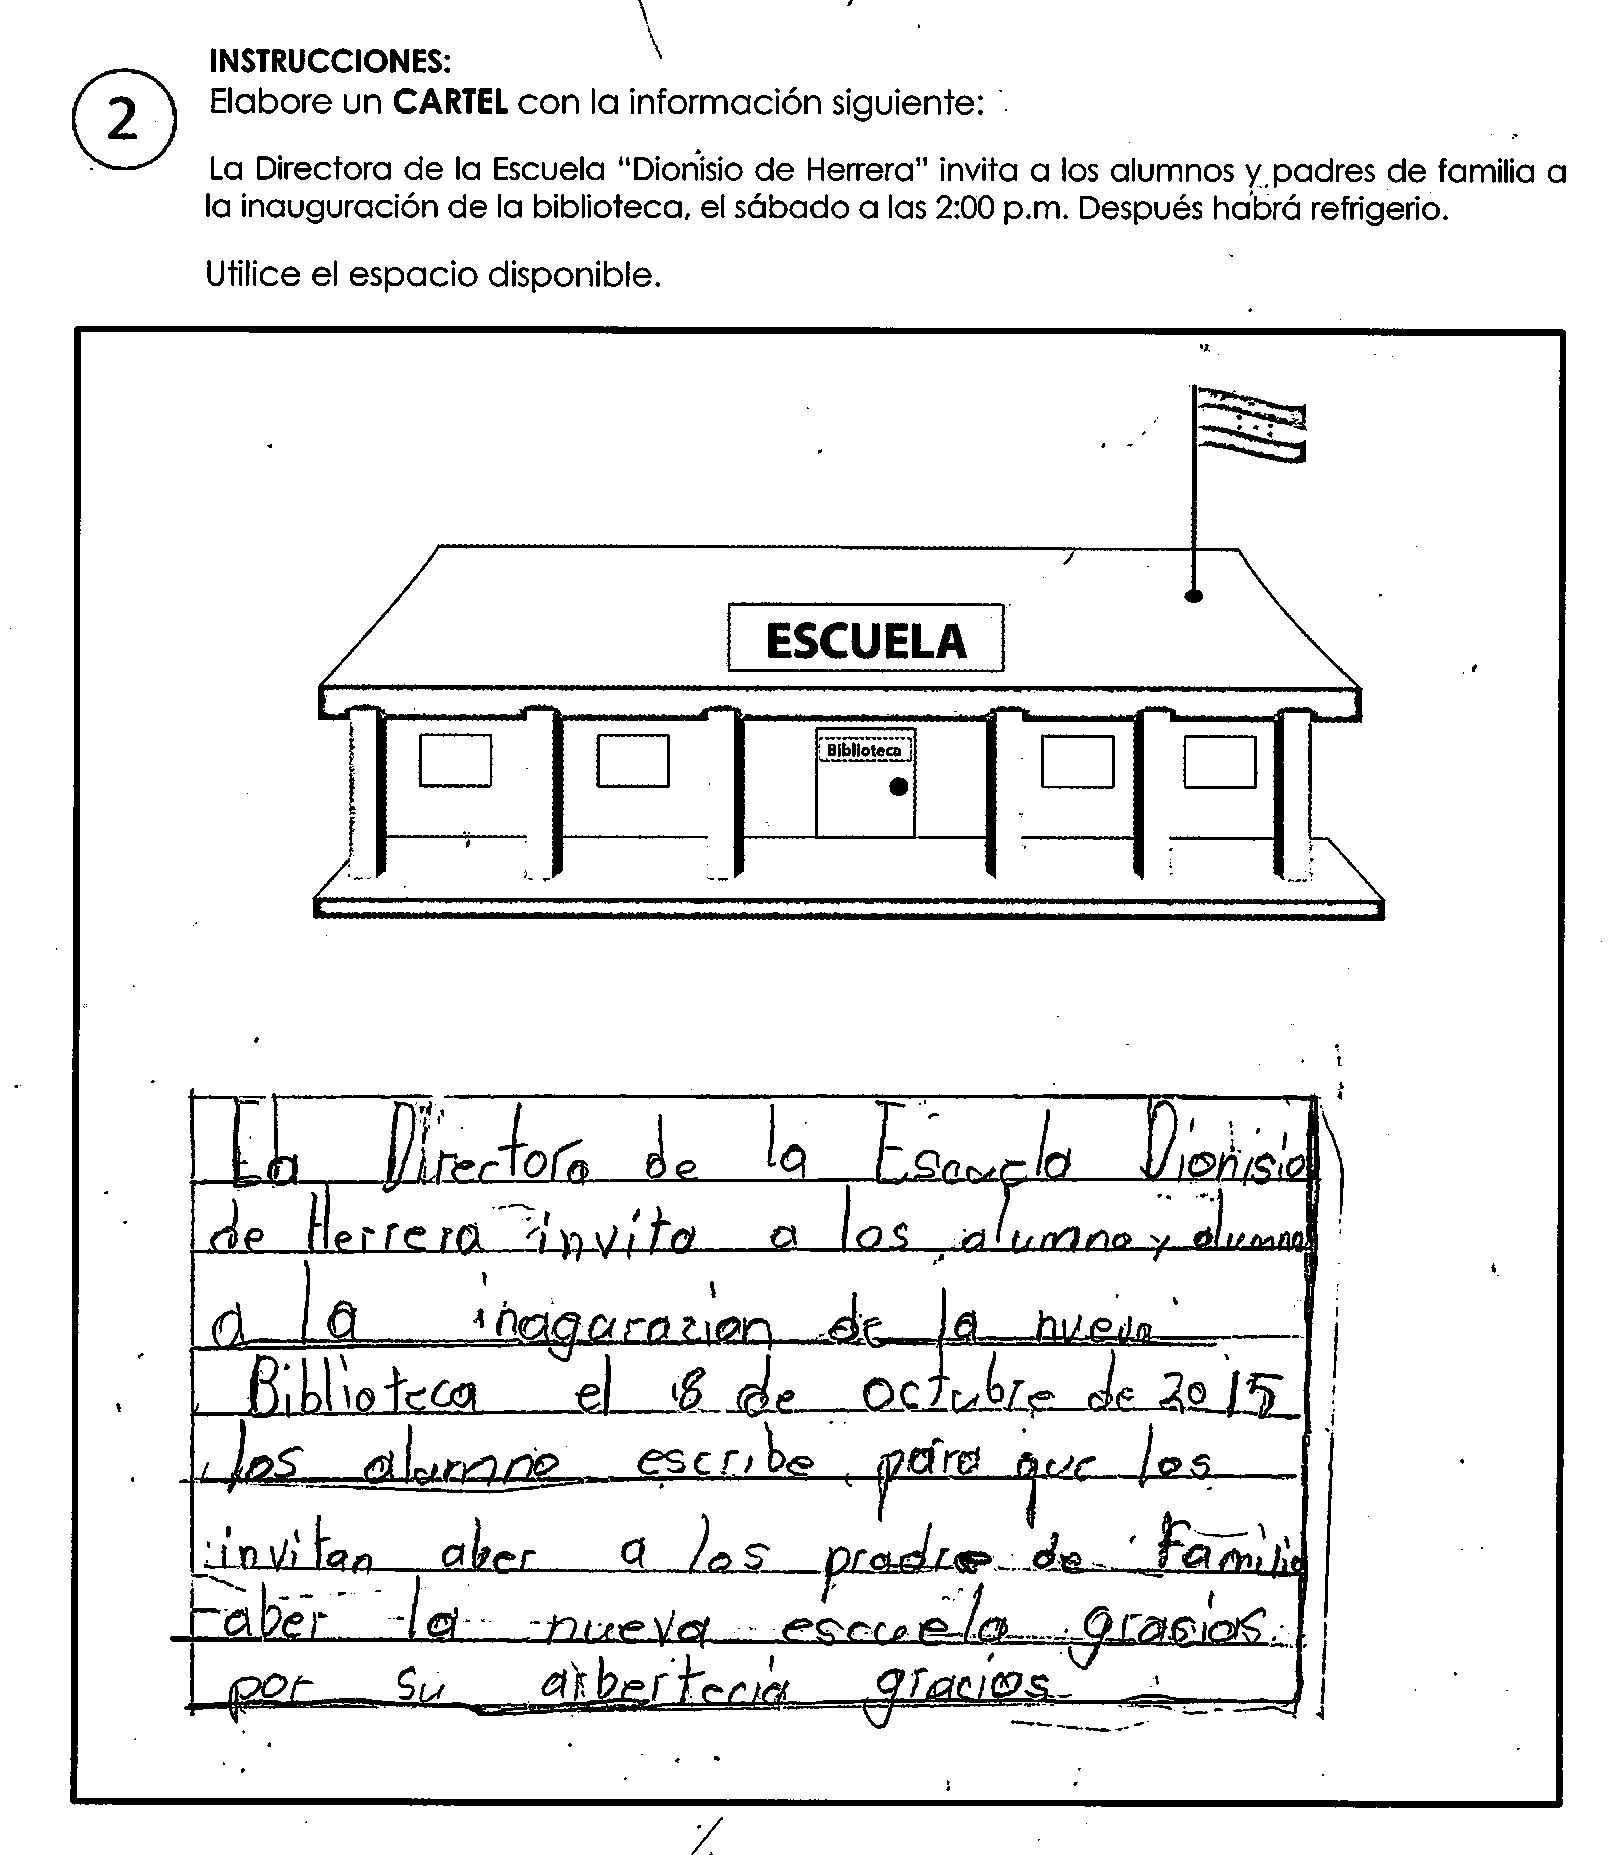 2
INSTRUCCIONES:
Elabore un CARTEL con la información siguiente:
La Directora de la Escuela "Dionisio de Herrera" invita a los alumnos y padres de familia a
la inauguración de la biblioteca, el sábado a las 2:00 p.m. Después habrá refrigerio.
Utilice el espacio disponible.
ESCUELA
Biblioteca
La Directora de la Escuela Dionisio
de Herrera invita a los alumno y alumna
a la inagarazion de la nueva
Biblioteca el 18 de octubre de 2015
los alumno escribe para que los
invitan aber a los pradre de Familia
aber la nueva escuela grasias
por su arbertecia gracios